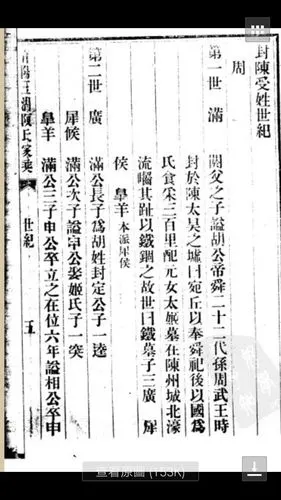 封陳受姓世紀
周
第一世 滿 閼父之子謚胡公帝舜二十二代孫周武王時
封於陳太昊之墟曰宛丘以奉舜祀後以國為
氏食采三百里配元女太姬墓在陳州城北濠
流囓其趾以鐵錮之故世曰鐵墓子三廣 犀
侯 臯羊 本派犀侯
第二世 廣 滿公長子為胡姓封定公子一逵
犀候 滿公次子謚公娶姬氏子一突
臯羊 滿公三子申公卒立之在位六年謚相公卒申
陳氏家乘
世紀 五
查看原圖 (153K)